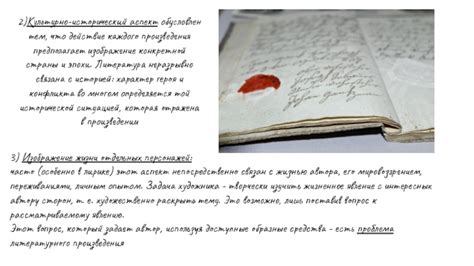 2) Культурно-исторический аспект обусловлен
тем, что действие каждого произведения
предполагает изображение конкретной
страны и эпохи. Литература неразрывно
связана с историей: характер героя и
конфликта во многом определяется той
исторической ситуацией, которая отражена
в произведении
3) Изображение жизни отдельных персонажей:
часто (особенно в лирике) этот аспект непосредственно связан с жизнью автора, его мировоззрением,
переживаниями, личным опытом. Задача художника - творчески изучить жизненное явление с интересных
автору сторон, т. е. художественно раскрыть тему. Это возможно, лишь поставив вопрос к
рассматриваемому явлению.
Этот вопрос, который задает автор, используя доступные образные средства - есть проблема
литературного произведения